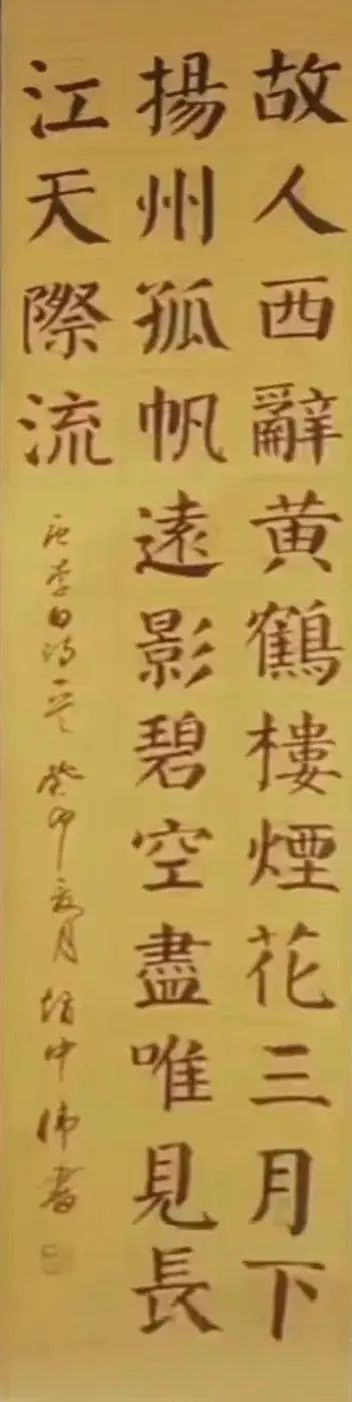 故人西辭黄鶴樓煙花三月下
揚州孤帆遠影碧空盡唯見長
江天際流
唐李白詩一首 癸卯夏月 趙中偉書